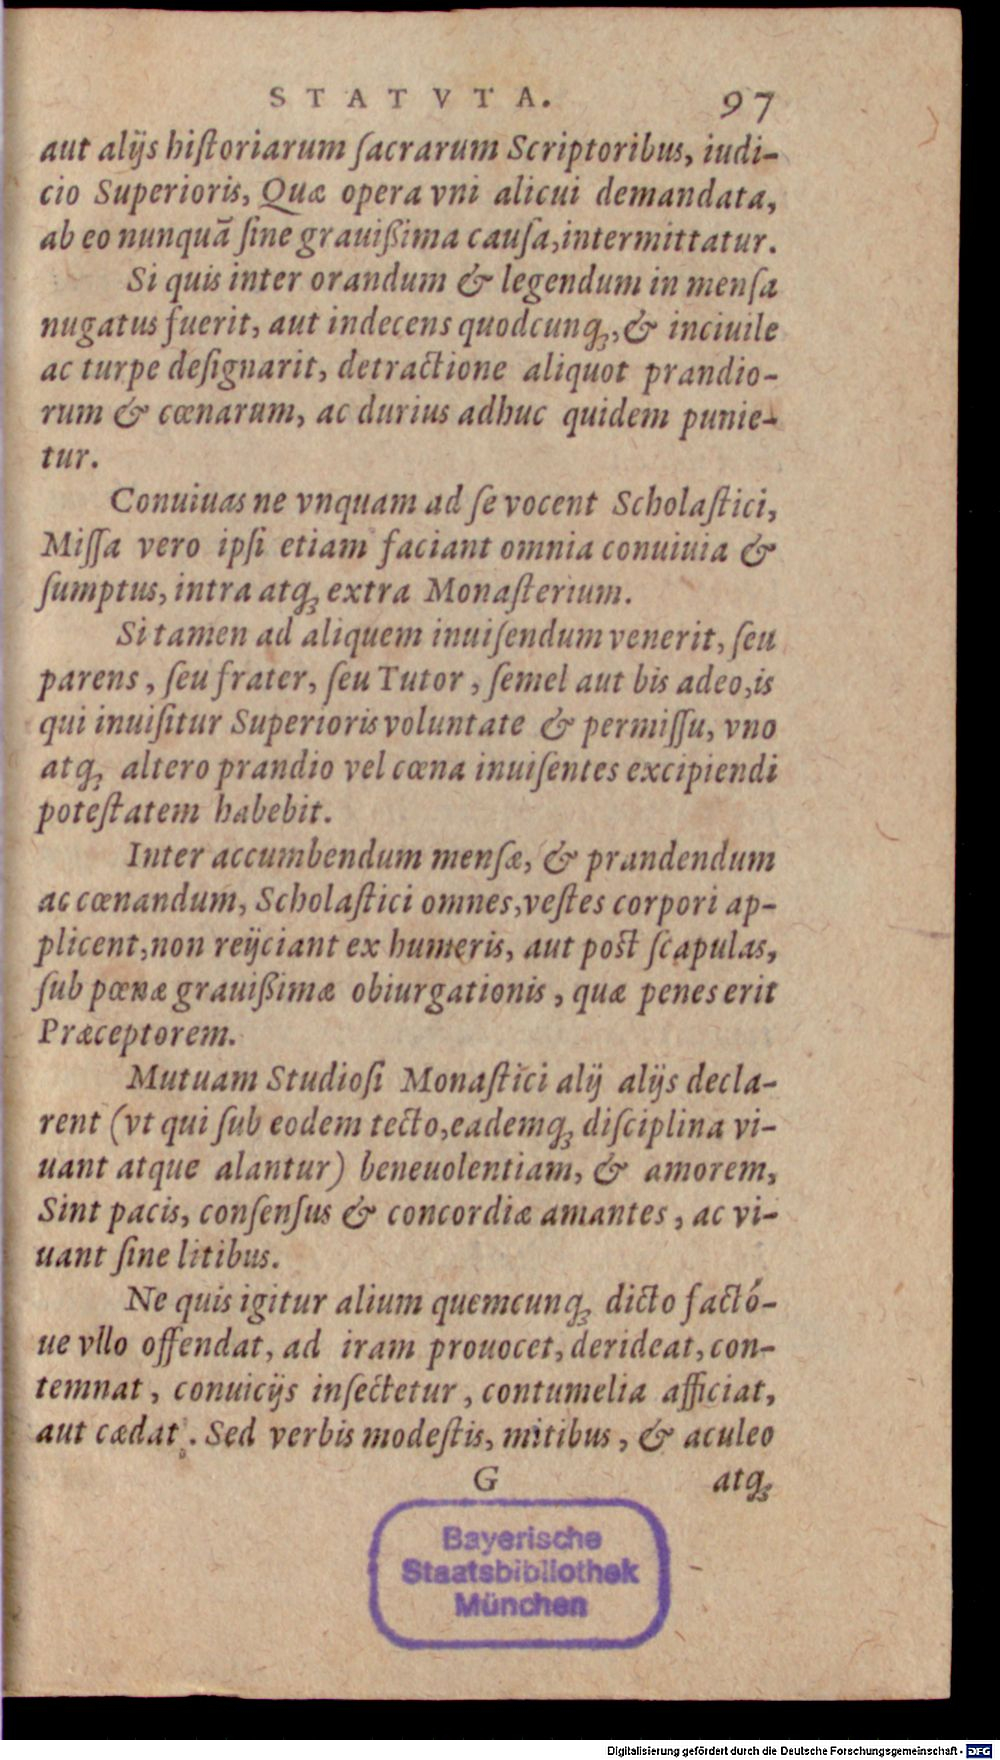 STATVTA. 97
aut alijs hiſtoriarum ſacrarum Scriptoribus, iudi-
cio Superioris, Quæ opera vni alicui demandata,
ab eo nunquā ſine grauißima cauſa, intermittatur.
Si quis inter orandum & legendum in menſa
nugatus fuerit, aut indecens quodcunq́ꝫ, & inciuile
ac turpe deſignarit, detractione aliquot prandio-
rum & cœnarum, ac durius adhuc quidem punie-
tur.
Conuiuas ne vnquam ad ſe vocent Scholaſtici,
Miſſa vero ipſi etiam faciant omnia conuiuia &
ſumptus, intra atqꝫ extra Monaſterium.
Si tamen ad aliquem inuiſendum venerit, ſeu
parens, ſeu frater, ſeu Tutor, ſemel aut bis adeo, is
qui inuiſitur Superioris voluntate & permiſſu, vno
atqꝫ altero prandio vel cœna inuiſentes excipiendi
poteſtatem habebit.
Inter accumbendum menſæ, & prandendum
ac cœnandum, Scholaſtici omnes, veſtes corpori ap-
plicent, non reijciant ex humeris, aut poſt ſcapulas,
ſub pœnæ grauißimæ obiurgationis, quæ penes erit
Præceptorem.
Mutuam Studioſi Monaſtici alij alijs decla-
rent (vt qui ſub eodem tecto, eademqꝫ diſciplina vi-
uant atque alantur) beneuolentiam, & amorem,
Sint pacis, conſenſus & concordiæ amantes, ac vi-
uant ſine litibus.
Ne quis igitur alium quemcunqꝫ dicto factó-
ue vllo offendat, ad iram prouocet, derideat, con-
temnat, conuicijs inſectetur, contumelia afficiat,
aut cædat. Sed verbis modeſtis, mitibus, & aculeo
G atqꝫ
Bayerische
Staatsbibliothek
München
Digitalisierung gefördert durch die Deutsche Forschungsgemeinschaft - DFG